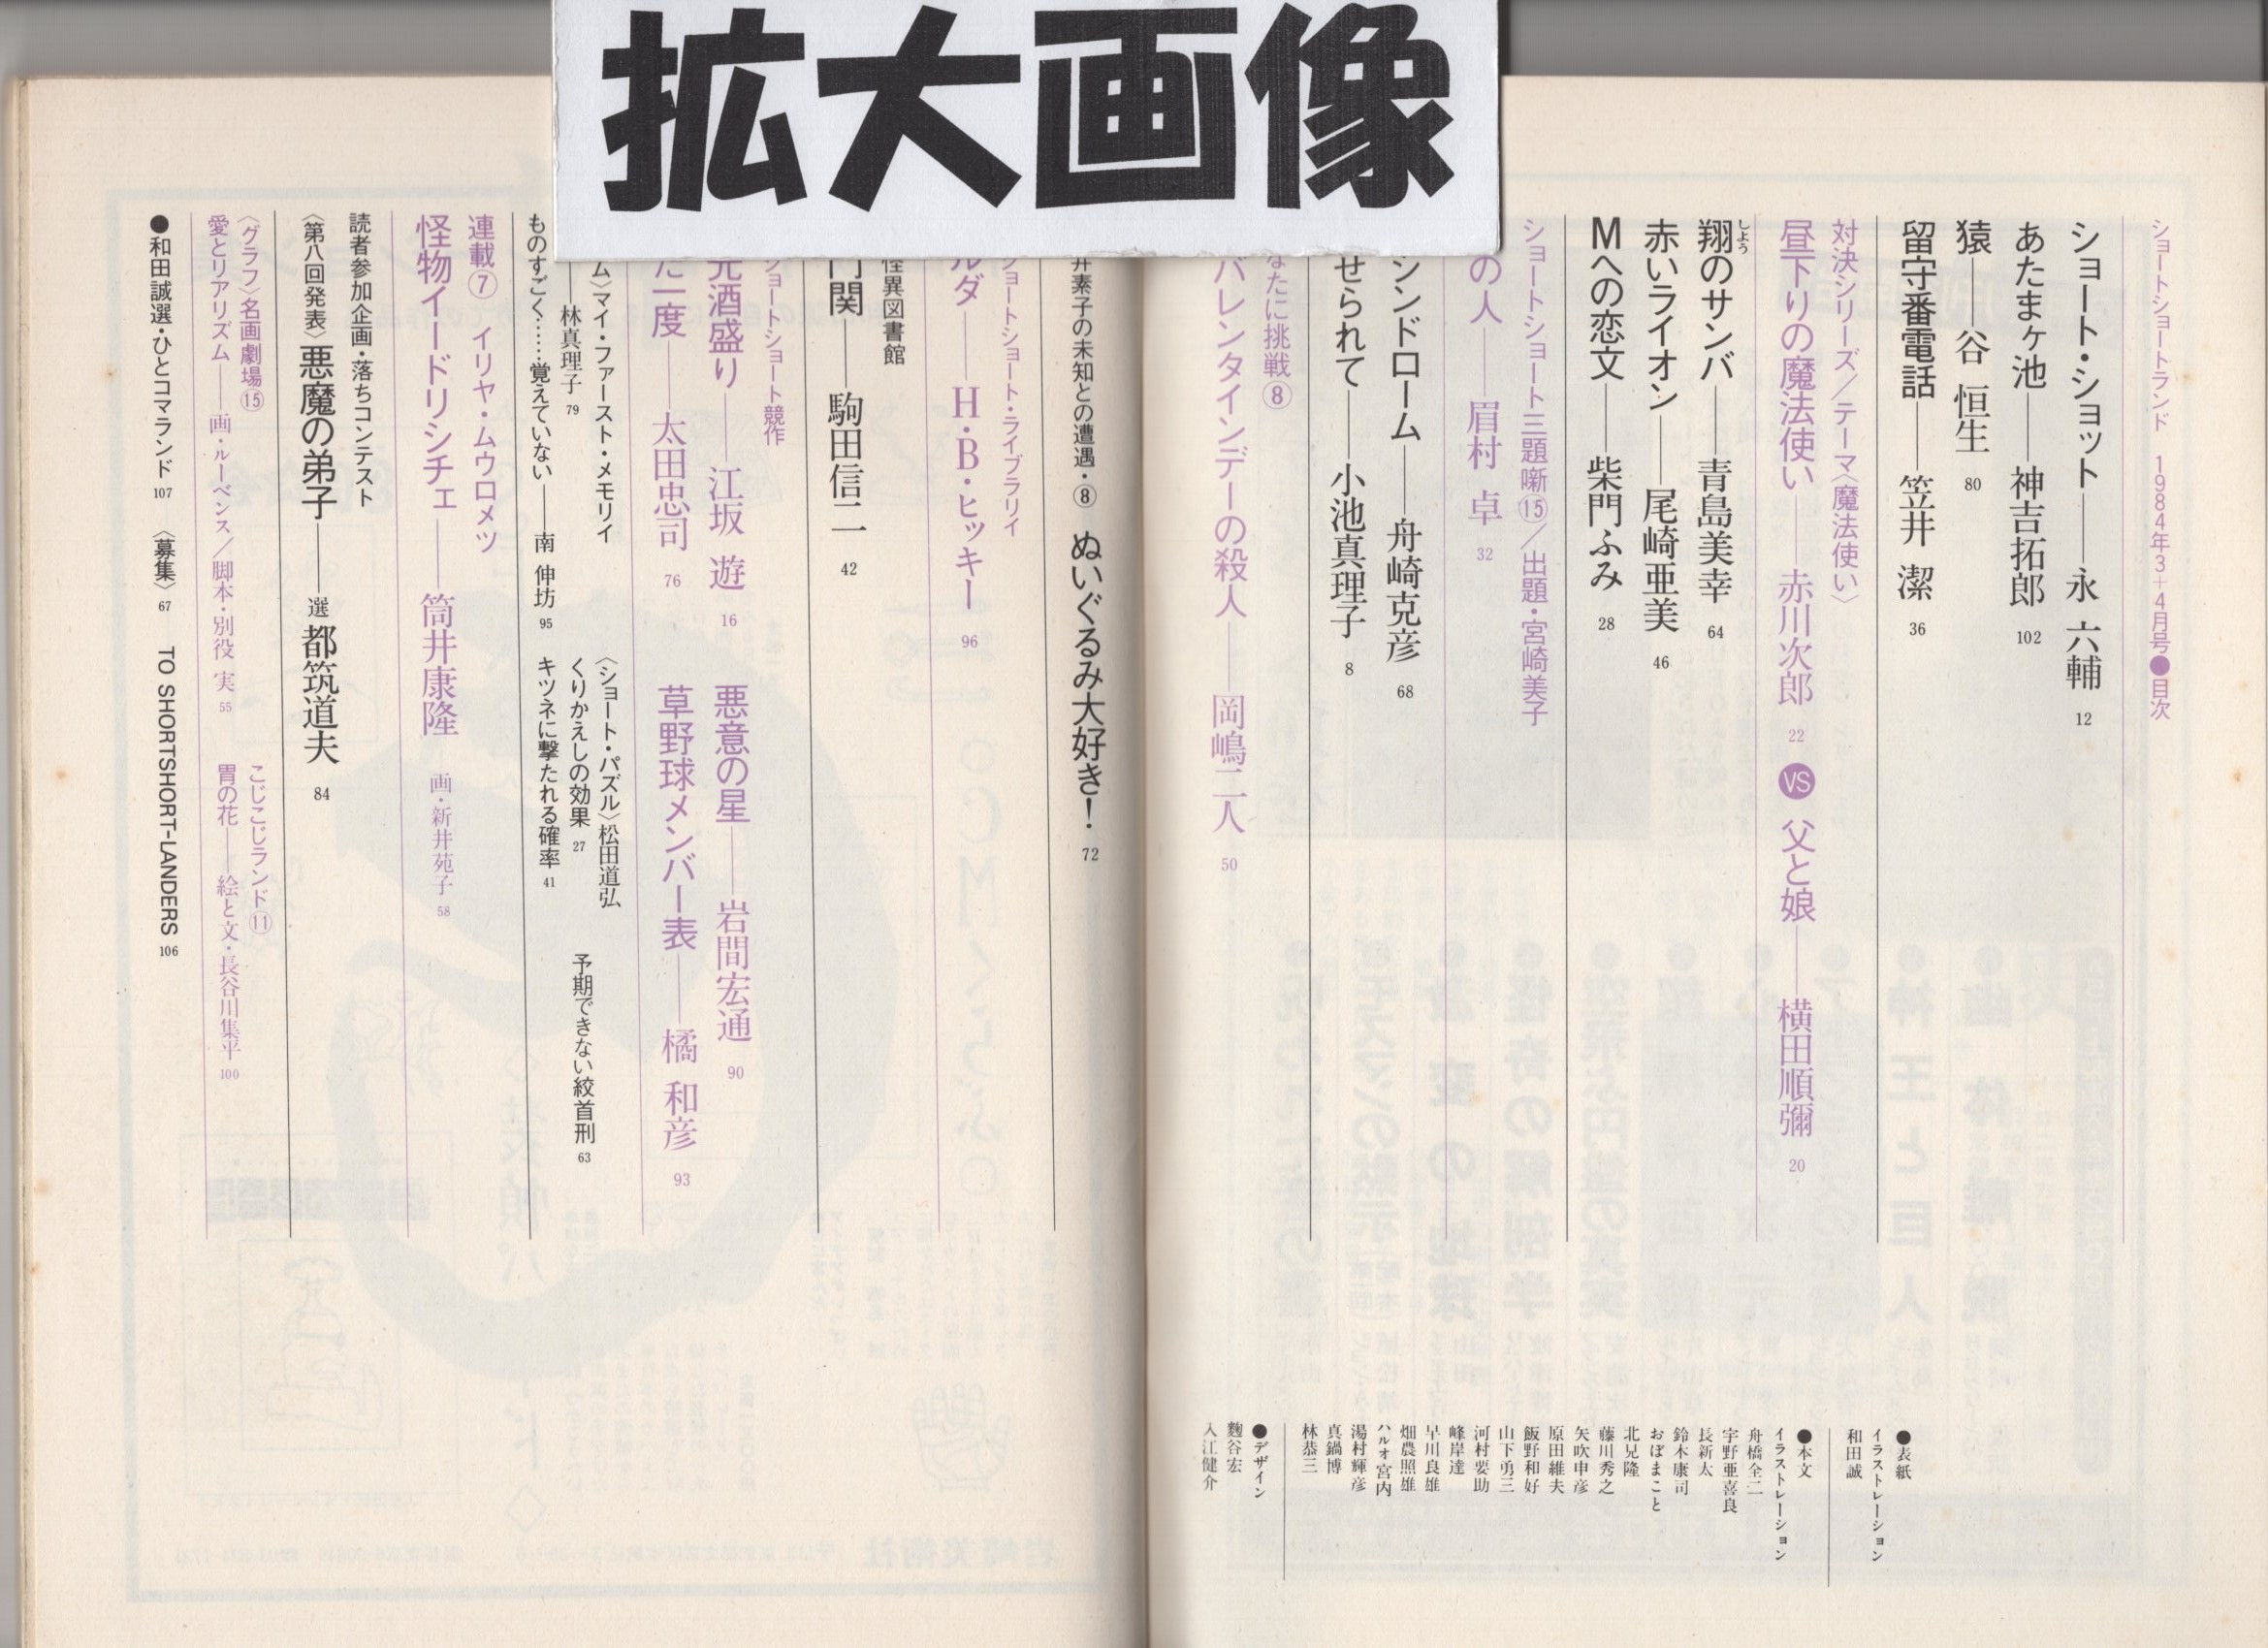 拡大画像
ショートショートランド 1984年3+4月号●目次
ショート・ショット――永 六輔 12
あたまヶ池――神吉拓郎 102
猿――谷 恒生 80
留守番電話――笠井 潔 36
対決シリーズ/テーマ〈魔法使い〉
昼下りの魔法使い――赤川次郎 22 VS 父と娘――横田順彌 20
しよう
翔のサンバ――青島美幸 64
赤いライオン――尾崎亜美 46
Mへの恋文――柴門ふみ 28
ショートショート三題噺⑮/出題・宮崎美子
の人――眉村 卓 32
シンドローム――舟崎克彦 68
せられて――小池真理子 8
なたに挑戦⑧
バレンタインデーの殺人――岡嶋二人 50
井素子の未知との遭遇・⑧ ぬいぐるみ大好き! 72
ョートショート・ライブラリイ
ルダ――H・B・ヒッキー 96
怪異図書館
門関――駒田信二 42
ョートショート競作
酒盛り――江坂 遊 16 悪意の星――岩間宏通 90
た一度――太田忠司 76 草野球メンバー表――橘 和彦 93
ム〉マイ・ファースト・メモリイ
――林真理子 79
ものすごく……覚えていない――南 伸坊 95
〈ショート・パズル〉松田道弘
くりかえしの効果 27 予期できない絞首刑 63
キツネに撃たれる確率 41
連載⑦ イリヤ・ムウロメツ
怪物イードリシチェ――筒井康隆 画・新井苑子 58
読者参加企画・落ちコンテスト
〈第八回発表〉悪魔の弟子――選 都筑道夫 84
〈グラフ〉名画劇場⑮
愛とリアリズム――画・ルーベンス/脚本・別役 実 55
こじこじランド⑪
胃の花――絵と文・長谷川集平 100
●和田誠選・ひとコマランド 107 〈募集〉 67 TO SHORTSHORT-LANDERS 106
●表紙
イラストレーション
和田誠
●本文
イラストレーション
舟橋全二
宇野亜喜良
長新太
鈴木康司
おぼまこと
北見隆
藤川秀之
矢吹申彦
原田維夫
飯野和好
山下勇三
河村要助
峰岸達
早川良雄
畑農照雄
ハルオ宮内
湯村輝彦
真鍋博
林恭三
●デザイン
麴谷宏
入江健介